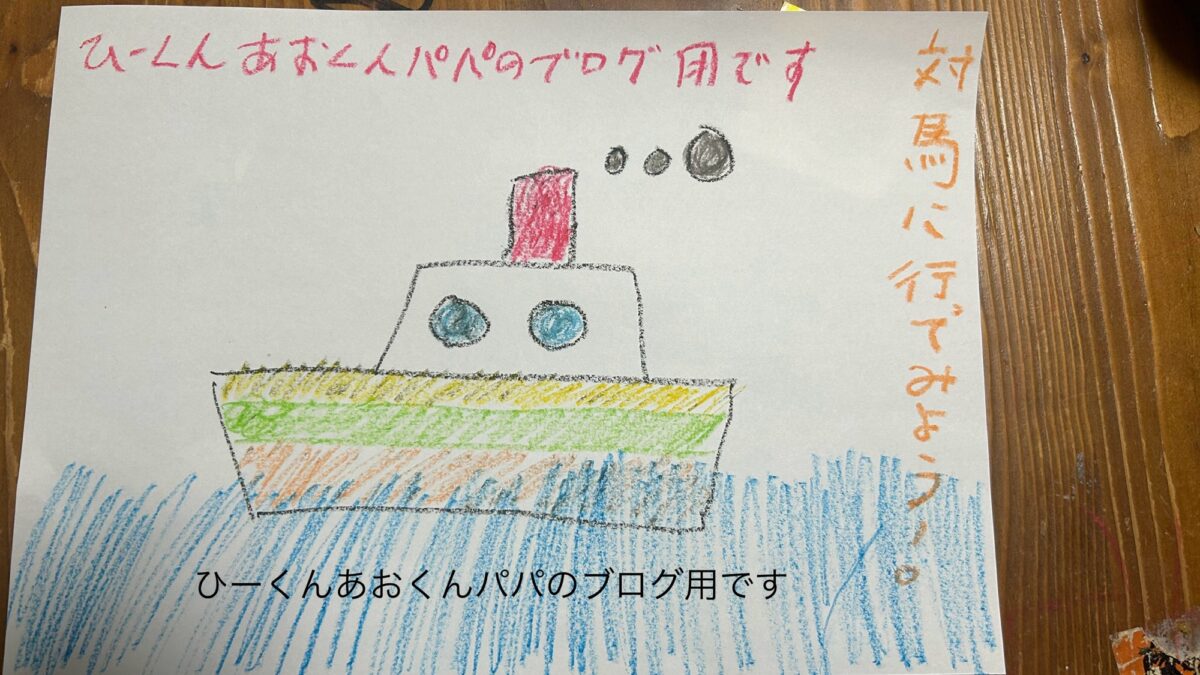 ひーくんあおくんパパのブログ用です
対馬に行てみよう。
ひーくんあおくんパパのブログ用です